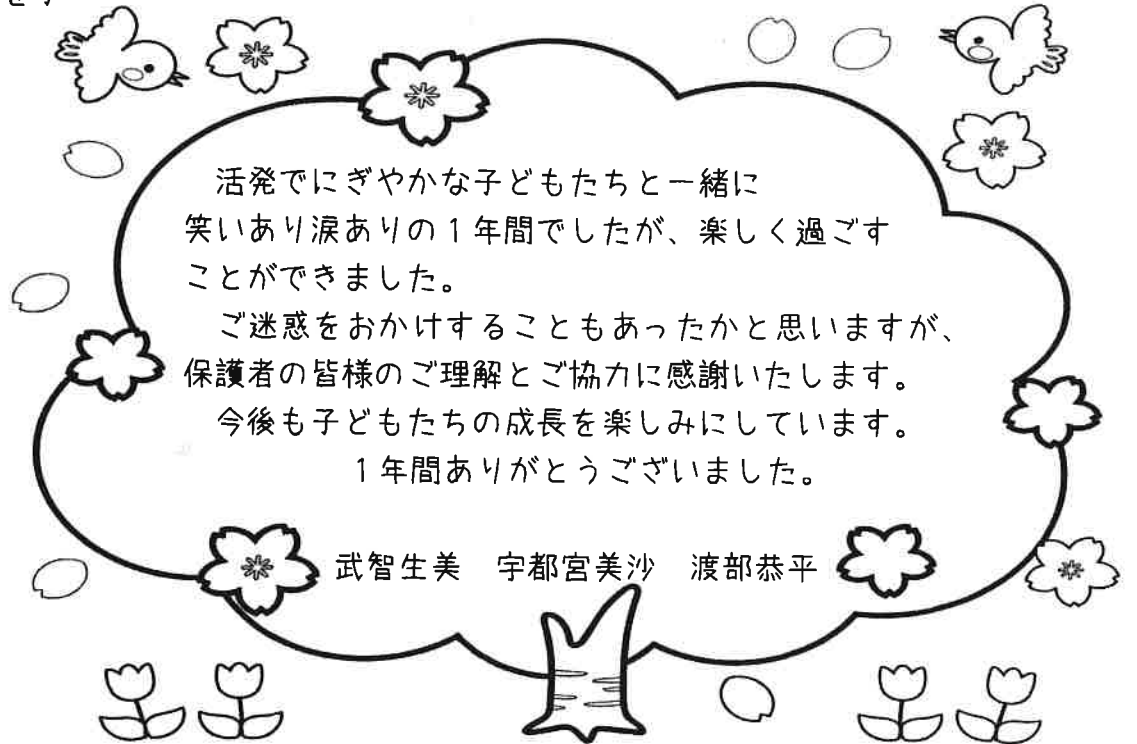 活発でにぎやかな子どもたちと一緒に
笑いあり涙ありの1年間でしたが、楽しく過ごす
ことができました。
ご迷惑をおかけすることもあったかと思いますが、
保護者の皆様のご理解とご協力に感謝いたします。
今後も子どもたちの成長を楽しみにしています。
1年間ありがとうございました。
武智生美 宇都宮美沙 渡部恭平